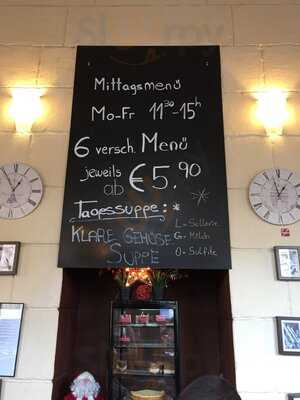 Mittagsmenü
Mo-Fr 11³⁰-15ʰ
6 versch. Menü
jeweils
ab €5,90
Tagessuppe:*
Klare Gemüse
Suppe
L-Sellerie
G-Milch
O-Sulfite